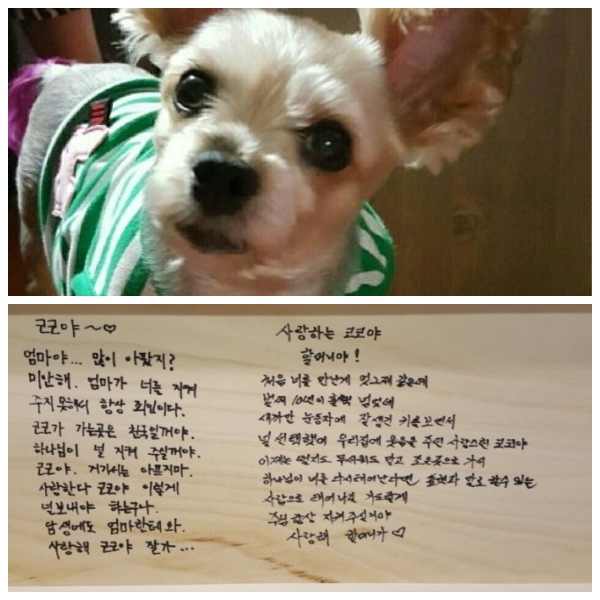 코코야~♡
엄마야... 많이 아팠지?
미안해. 엄마가 너를 지켜
주지 못해서 항상 죄인이다.
코코가 가는곳은 천국일꺼야.
하나님이 널 지켜 주실꺼야.
코코야. 거기서는 아프지마.
사랑한다 코코야 이렇게
널보내야 하는구나.
담생에도 엄마한테 와.
사랑해 코코야 잘가...
사랑하는 코코야
할머니야!
처음 너를 만난게 엊그제 같은데
벌써 10년이 훌쩍 넘었네
새까만 눈동자에 잘생긴 귀를보면서
널 선택했어 우리집에 웃음을 주던 사랑스런 코코야
이제는 아프지도 무서워도 말고 좋은곳으로 가서
하나님이 너를 다시태어난다면 표현과 말로 할수있는
사람으로 태어나길 기도할게
주님 항상 지켜주실거야
사랑해 할머니가 ♡